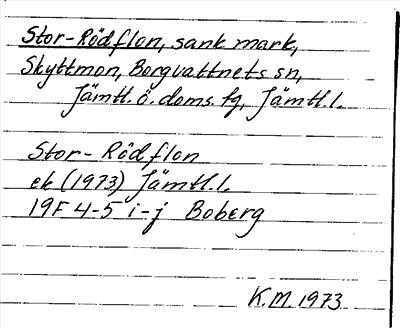 Stor-Rödflon, sank mark,
Skyttmon, Borgvattnets sn,
Jämtl. ö. doms. tg, Jämtl. l.
Stor-Rödflon
ek (1973) Jämtl. l.
19F 4-5 i-j Boberg
K.M. 1973